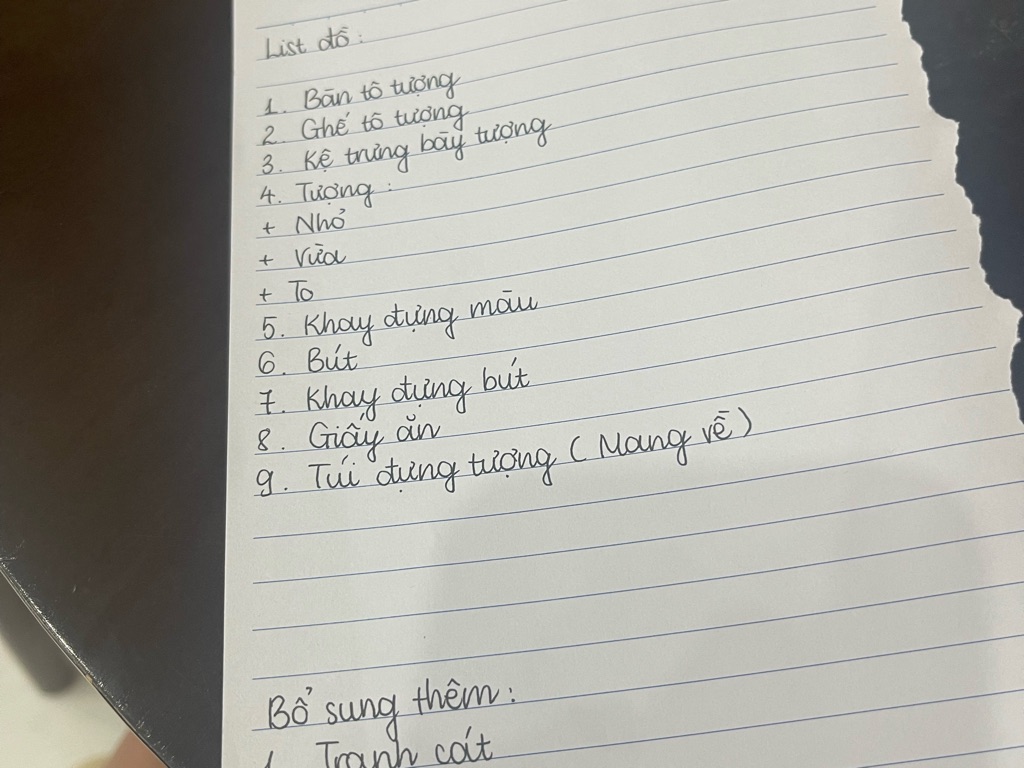 List đồ:
1. Bàn tô tượng
2. Ghế tô tượng
3. Kệ trưng bày tượng
4. Tượng:
+ Nhỏ
+ Vừa
+ To
5. Khay đựng màu
6. Bút
7. Khay đựng bút
8. Giấy ăn
9. Túi đựng tượng (Mang về)
Bổ sung thêm:
1. Tranh cát